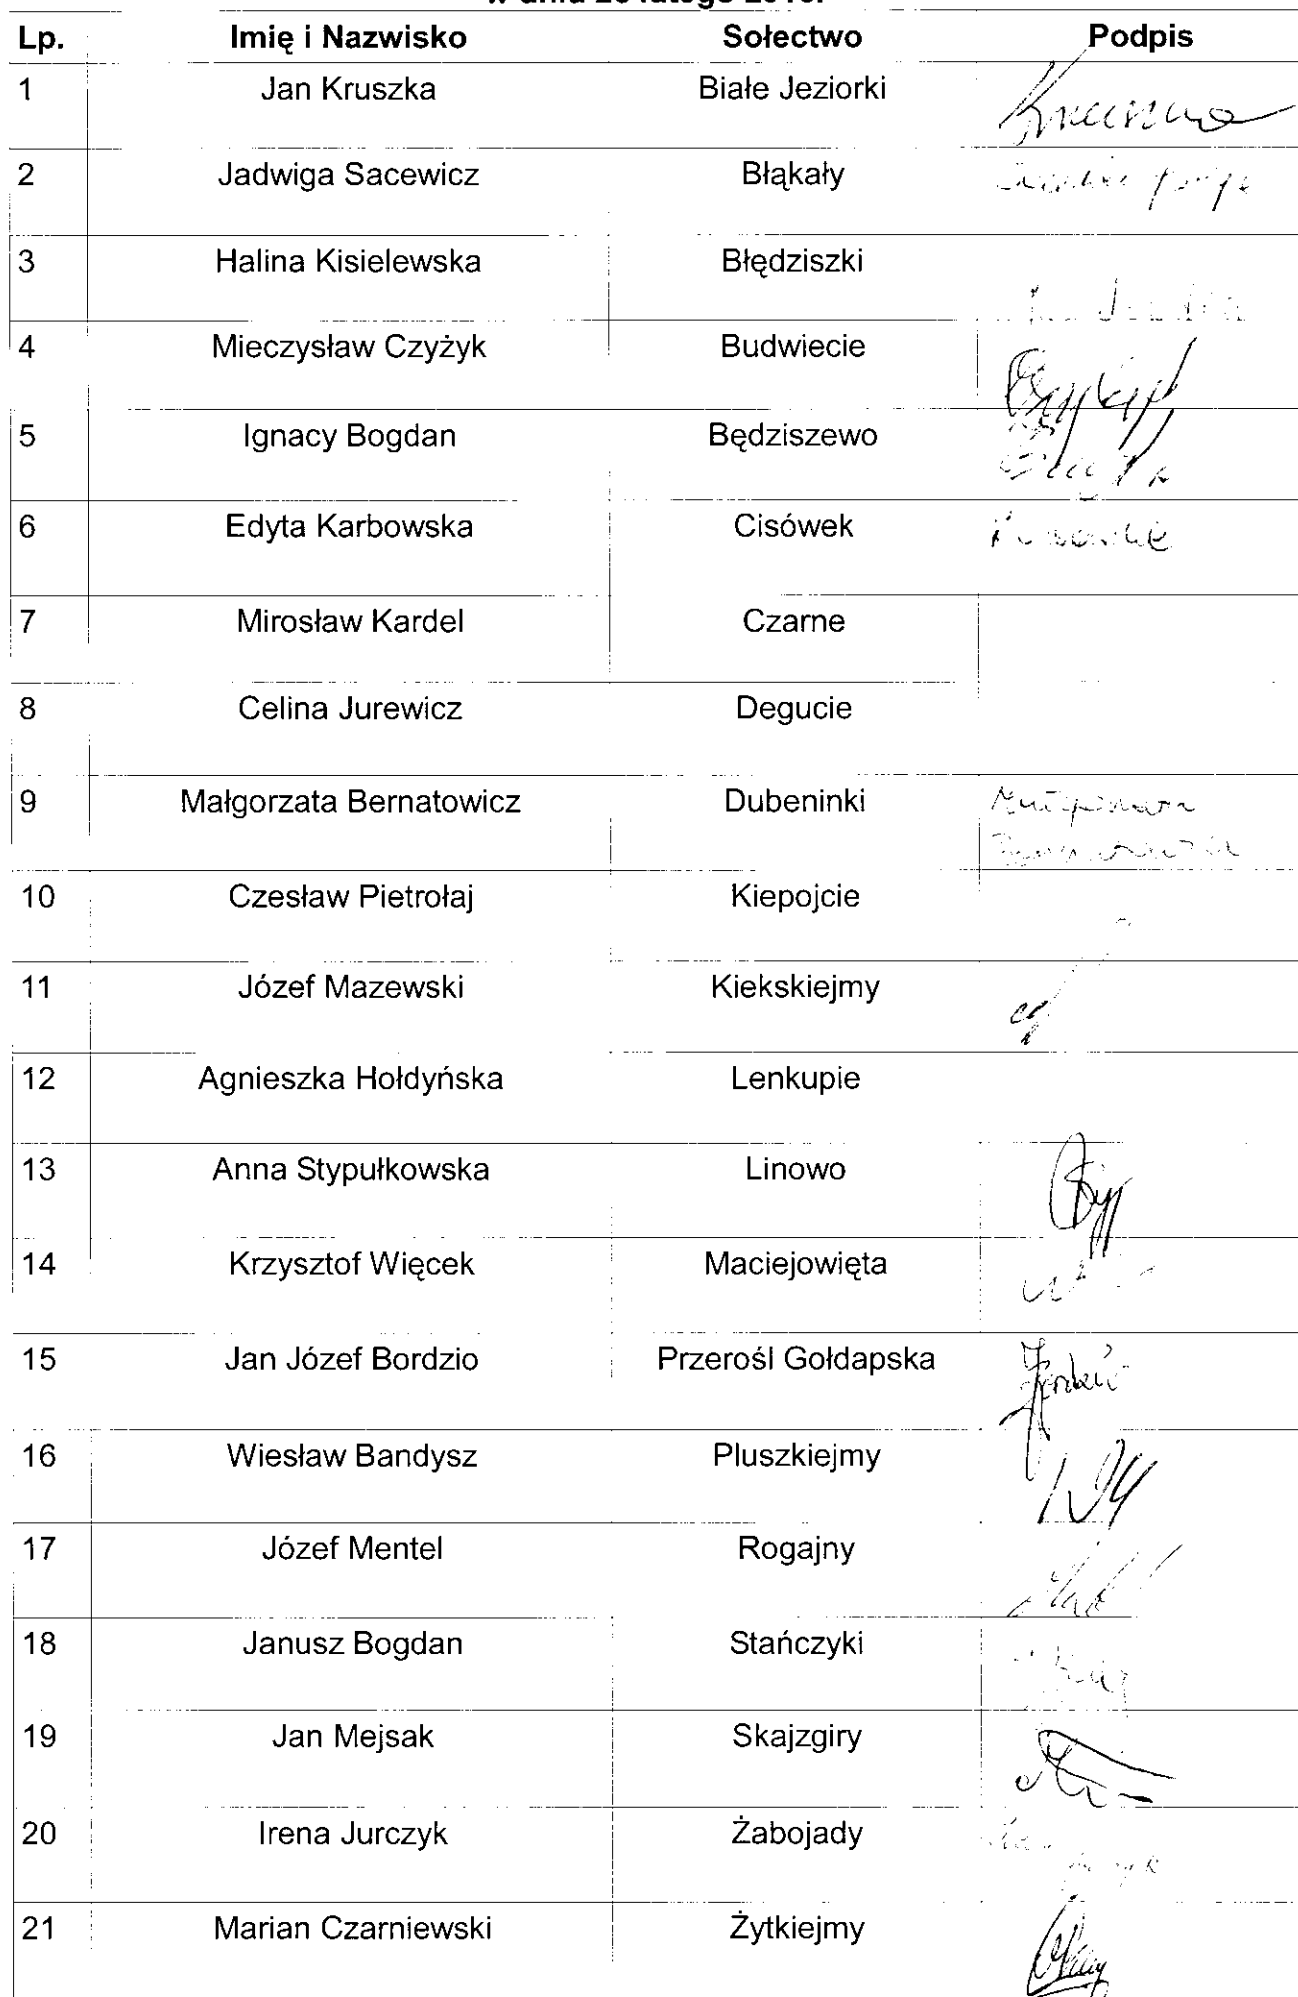 Lp. Imię i Nazwisko Sołectwo Podpis
1 Jan Kruszka Białe Jeziorki
2 Jadwiga Sacewicz Błąkały
3 Halina Kisielewska Błędziszki
4 Mieczysław Czyżyk Budwiecie
5 Ignacy Bogdan Będziszewo
6 Edyta Karbowska Cisówek
7 Mirosław Kardel Czarne
8 Celina Jurewicz Degucie
9 Małgorzata Bernatowicz Dubeninki
10 Czesław Pietrołaj Kiepojcie
11 Józef Mazewski Kiekskiejmy
12 Agnieszka Hołdyńska Lenkupie
13 Anna Stypułkowska Linowo
14 Krzysztof Więcek Maciejowięta
15 Jan Józef Bordzio Przerośl Gołdapska
16 Wiesław Bandysz Pluszkiejmy
17 Józef Mentel Rogajny
18 Janusz Bogdan Stańczyki
19 Jan Mejsak Skajzgiry
20 Irena Jurczyk Żabojady
21 Marian Czarniewski Żytkiejmy